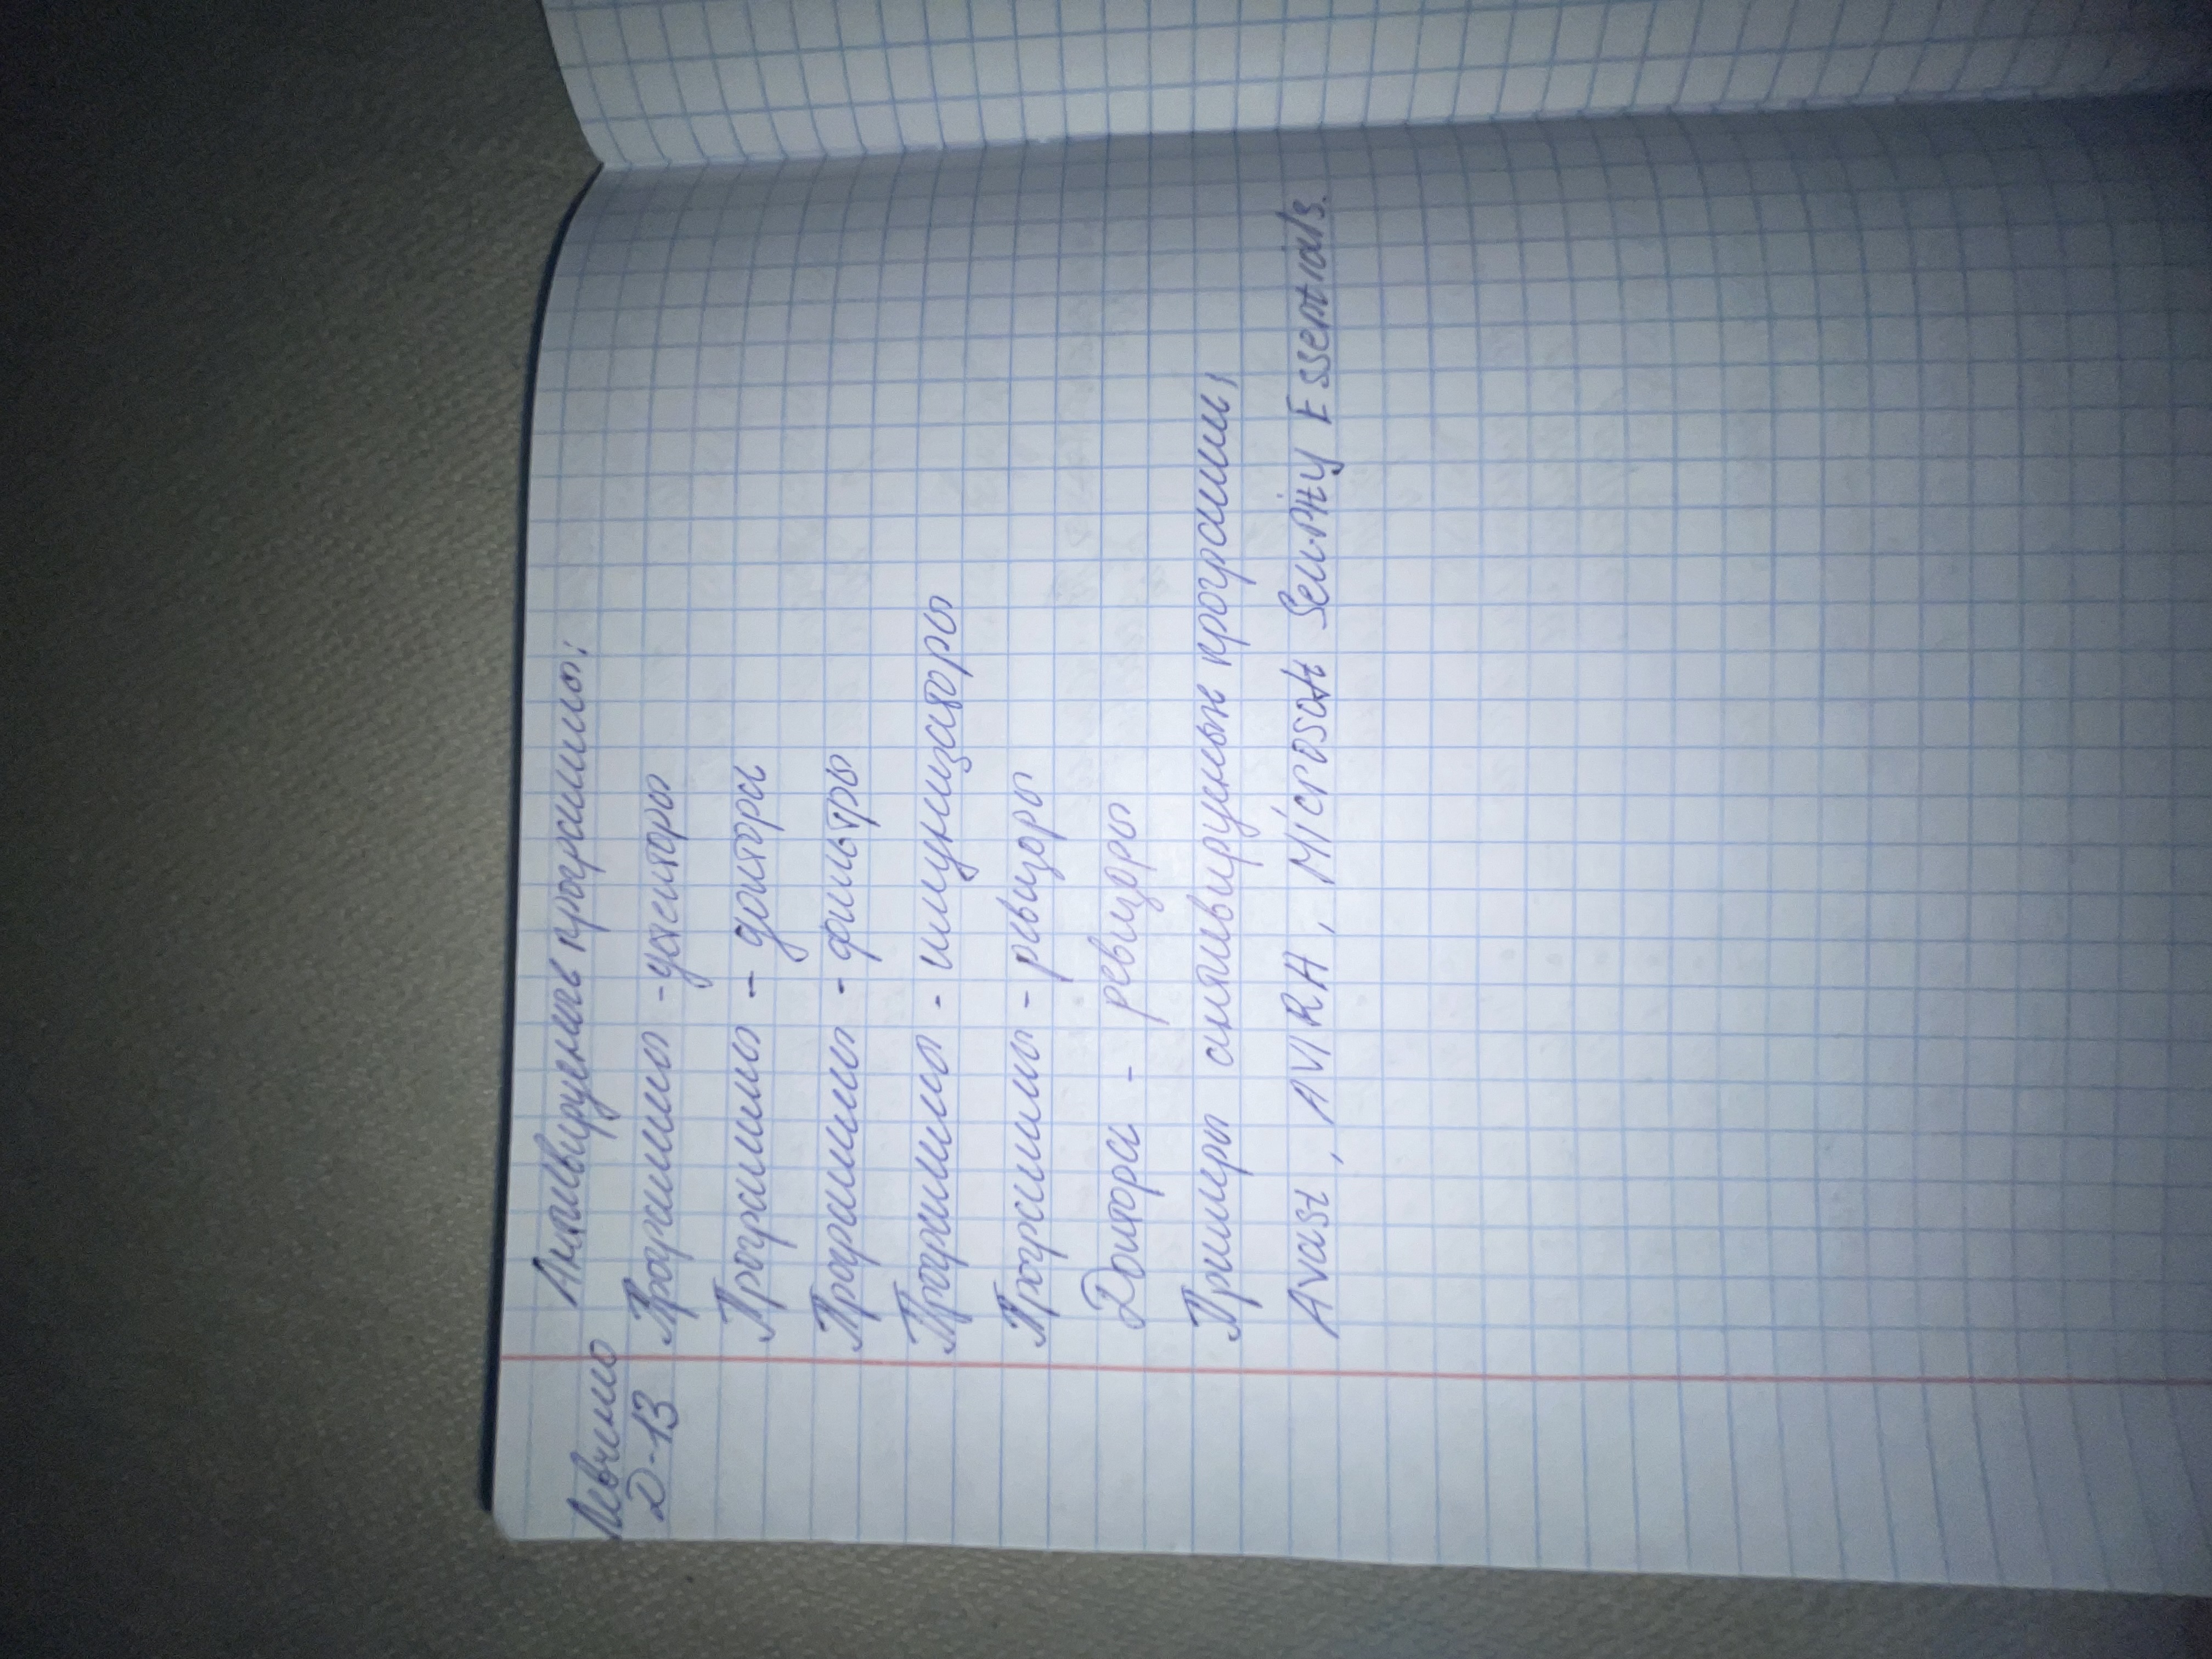 Левченко
Д-13
Антивирусные программы:
Программы - детекторы
Программы - доктора
Программы - фильтры
Программы - иммунизаторы
Программы - ревизоры
Доктора - ревизоры
Примеры антивирусных программ:
Avast, AVIRA, Microsoft Security Essentials.